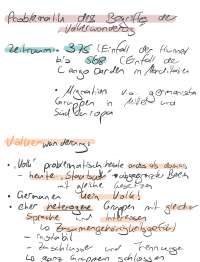 Problematik des Begriffs der
Völkerwanderung
Zeitraum: 375 (Einfall der Hunnen)
bis 568 (Einfall der
Langobarden in Norditalien
• Migration v.a. germanischer
Gruppen in Mittel und
Südeuropa
Völkerwanderung:
• "Volk" problematisch heute anders als damals
- heute "Staatsvolk" abgegrenzter Bereich
mit gleichen Gesetzen
• Germanen kein Volk!
• eher heterogene Gruppen mit gleicher
Sprache und Interessen
↳ Zusammengehörigkeitsgefühl
- instabil
- Zuschlüsse und Trennungen
↳ ganze Gruppen schlossen